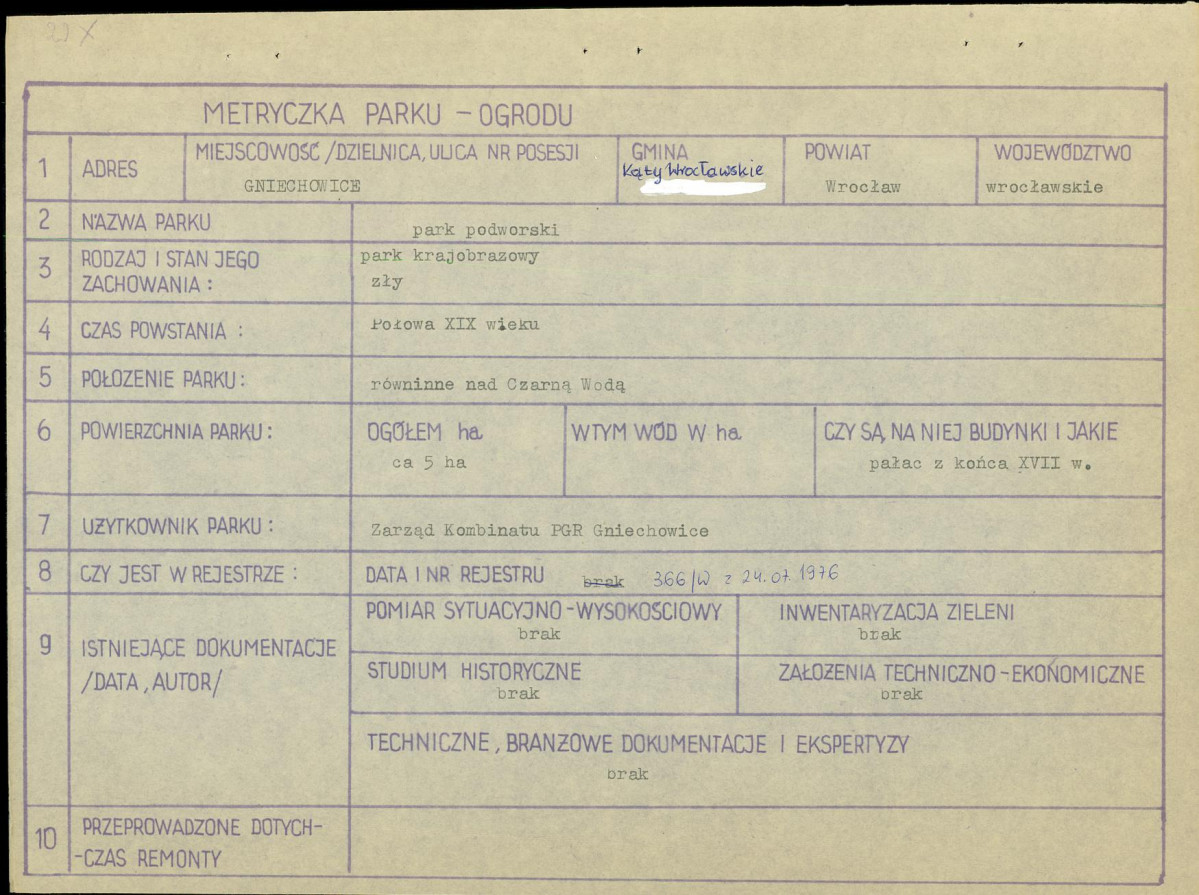 27 X
METRYCZKA PARKU - OGRODU
1 ADRES
MIEJSCOWOŚĆ /DZIELNICA, ULICA NR POSESJI
GNIECHOWICE
GMINA
Kąty Wrocławskie
POWIAT
Wrocław
WOJEWÓDZTWO
wrocławskie
2 NAZWA PARKU
park podworski
3 RODZAJ I STAN JEGO
ZACHOWANIA :
park krajobrazowy
zły
4 CZAS POWSTANIA :
Połowa XIX wieku
5 POŁOŻENIE PARKU :
równinne nad Czarną Wodą
6 POWIERZCHNIA PARKU :
OGÓŁEM ha
ca 5 ha
W TYM WÓD W ha
CZY SĄ NA NIEJ BUDYNKI I JAKIE
pałac z końca XVII w.
7 UŻYTKOWNIK PARKU :
Zarząd Kombinatu PGR Gniechowice
8 CZY JEST W REJESTRZE :
DATA I NR REJESTRU brak 366/W z 24.07.1976
9 ISTNIEJĄCE DOKUMENTACJE
/DATA, AUTOR/
POMIAR SYTUACYJNO - WYSOKOŚCIOWY
brak
INWENTARYZACJA ZIELENI
brak
STUDIUM HISTORYCZNE
brak
ZAŁOŻENIA TECHNICZNO - EKONOMICZNE
brak
TECHNICZNE, BRANŻOWE DOKUMENTACJE I EKSPERTYZY
brak
10 PRZEPROWADZONE DOTYCH-
-CZAS REMONTY